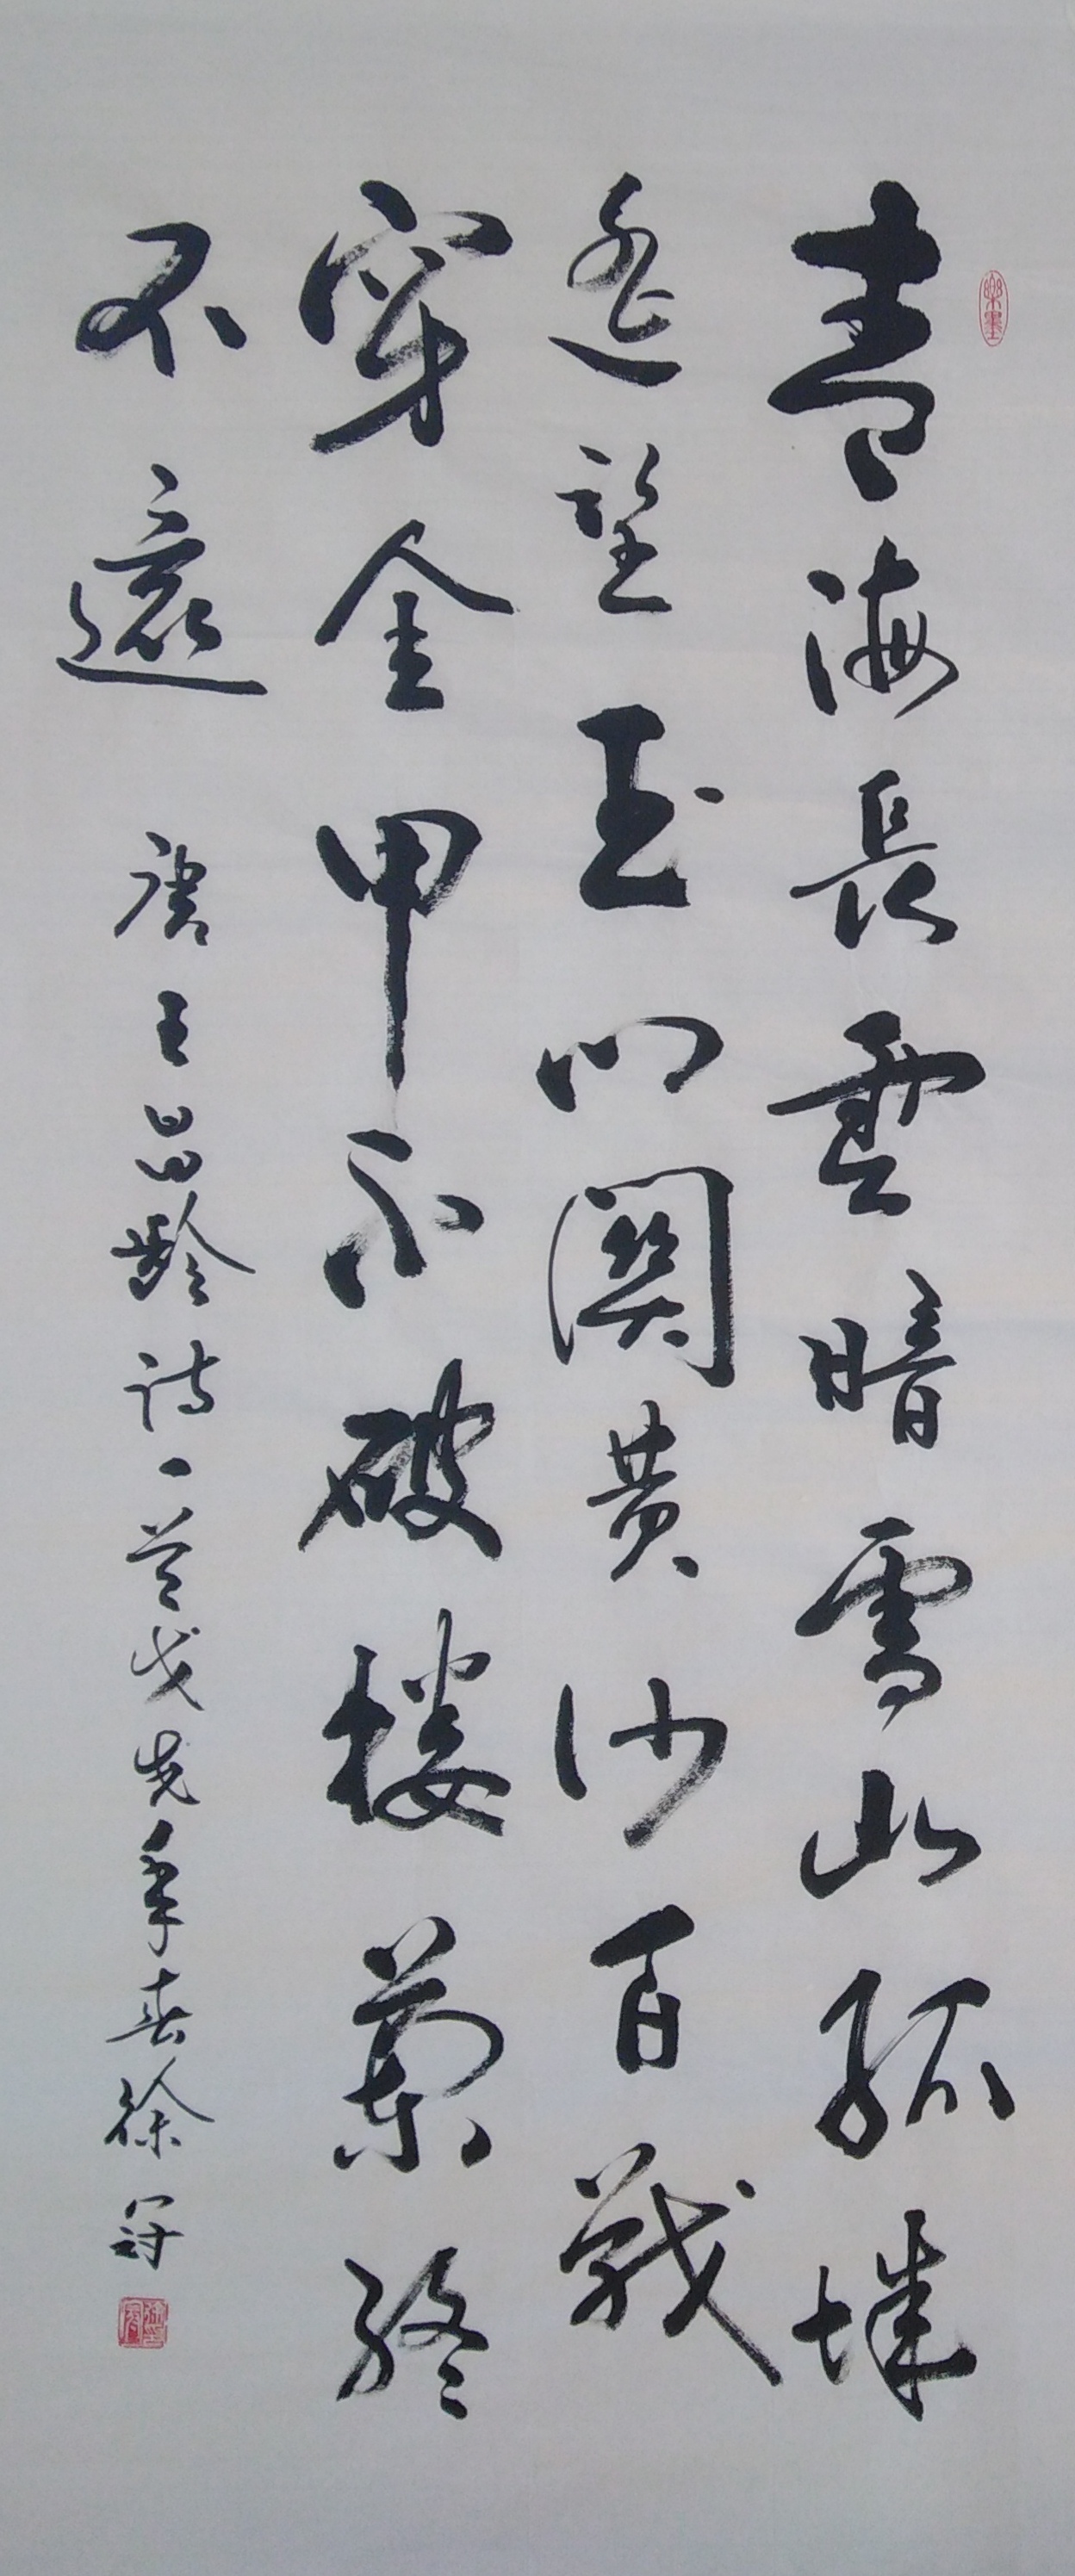 樂墨
青海長雲暗雪山孤城
遥望玉門關黄沙百戰
穿金甲不破楼蘭終
不還 唐王昌齡詩一首戊戌年春徐冠